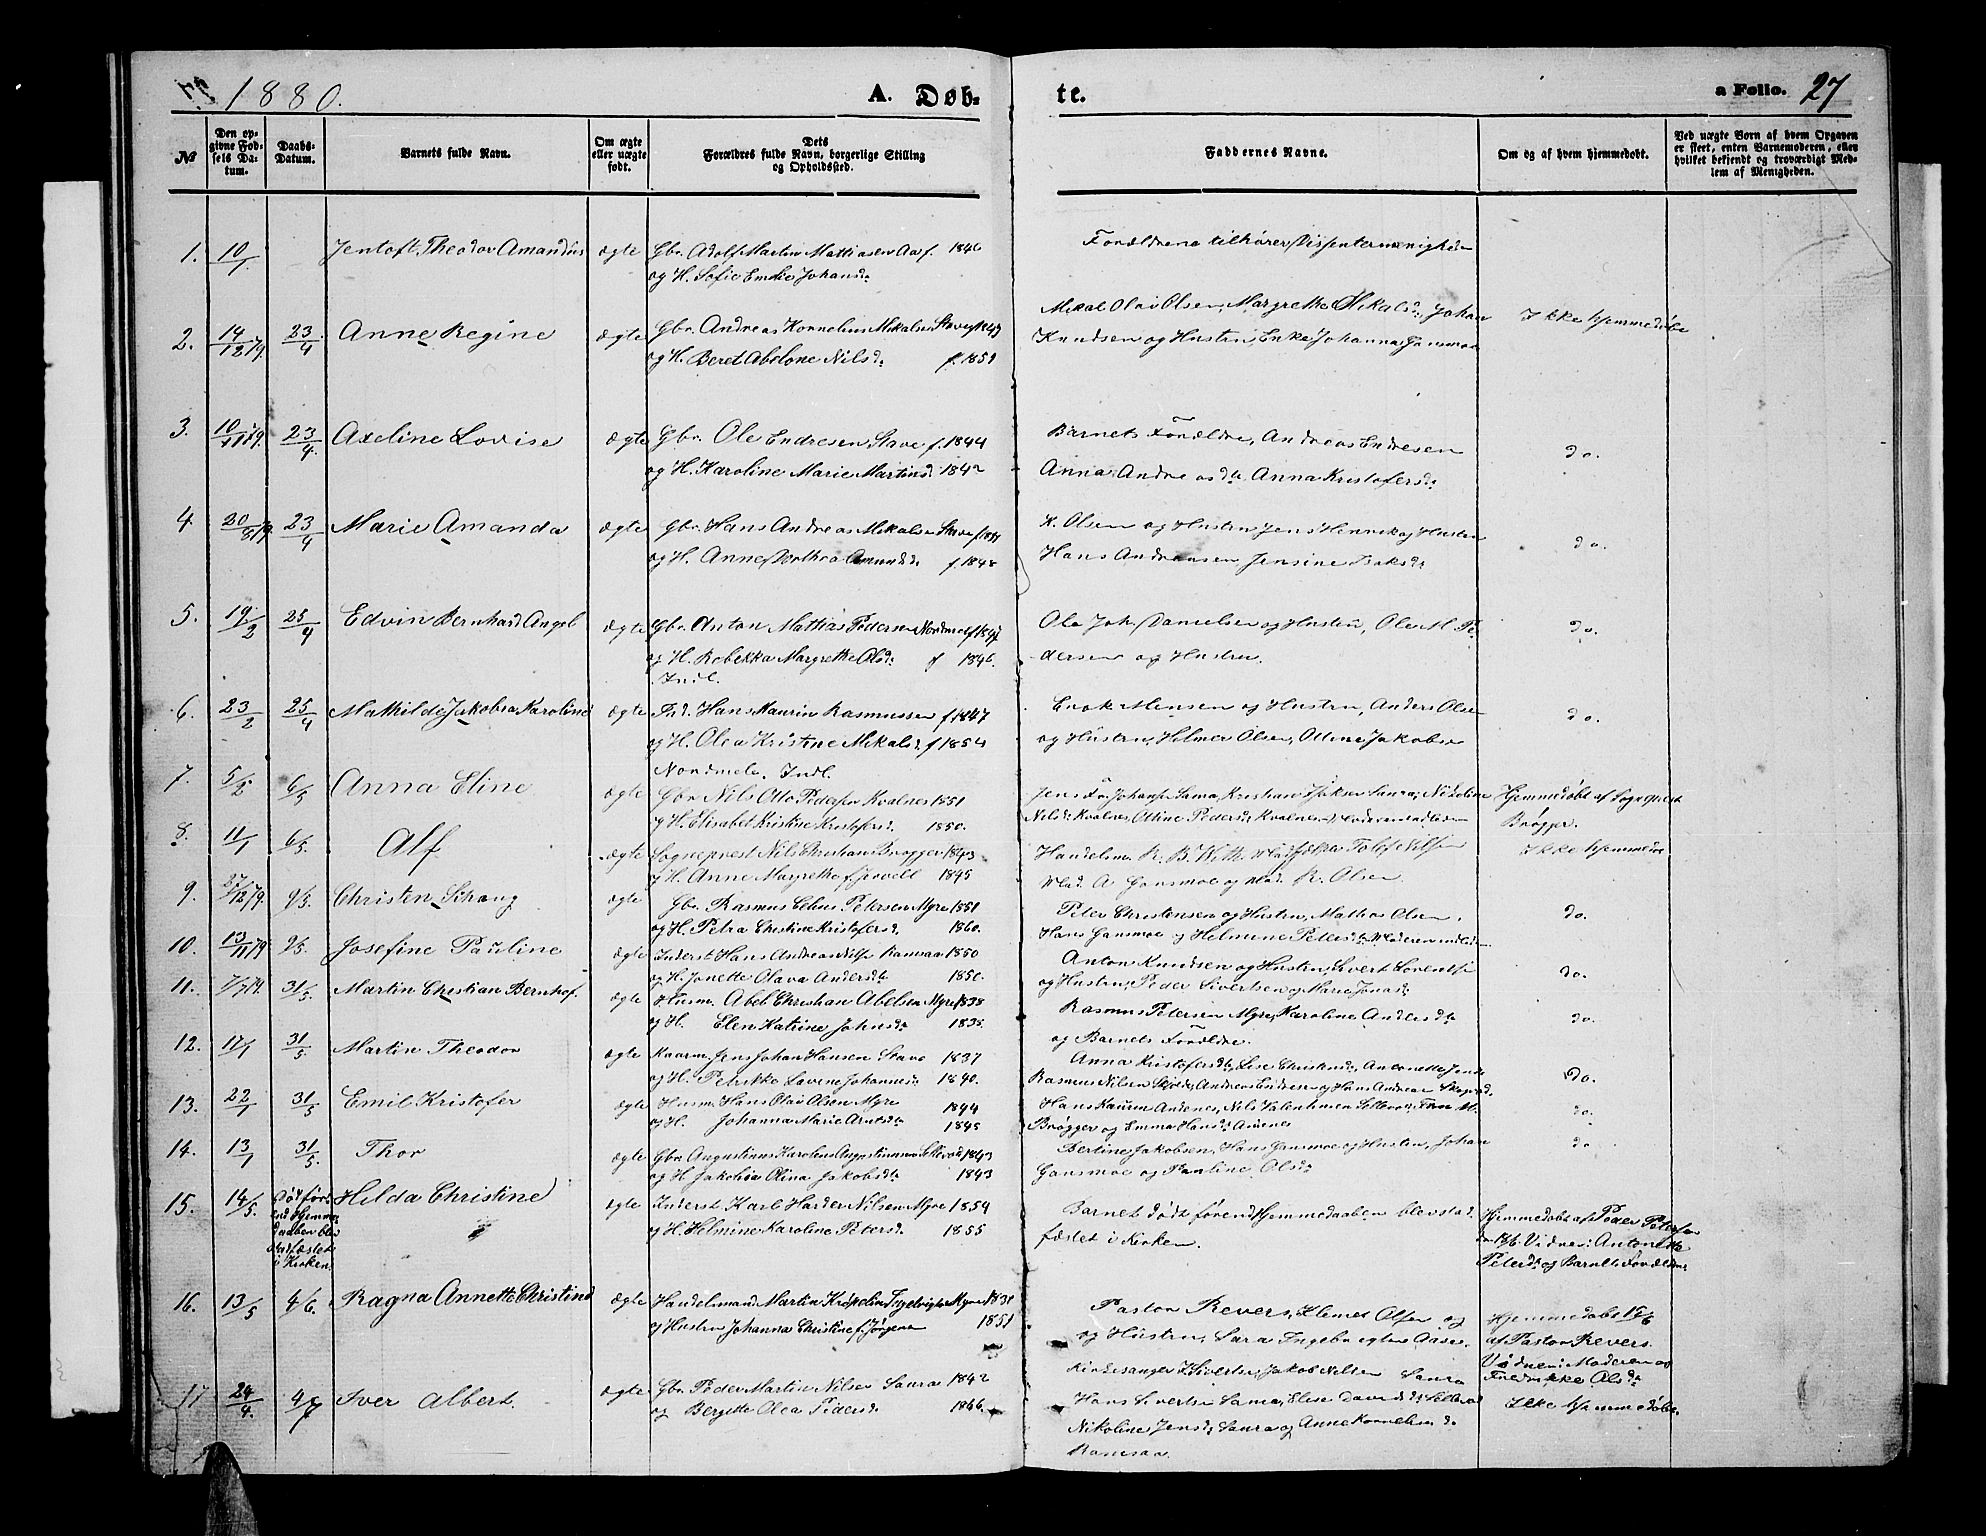 1880.
A. Døb-
te.
a Folio. 27
№
Den opgivne Fødsels Datum.
Daabs-Datum.
Barnets fulde Navn.
Om ægte eller uægte født.
Dets Forældres fulde Navn, borgerlige Stilling og Opholdssted.
Faddernes Navne.
Om og af hvem hjemmedøbt.
Ved uægte Børn af hvem Opgaven er skeet, enten Barnemoderen, eller hvilket bekjendt og troværdigt Medlem af Menigheden.
1. 10/1. Jentoft Theodor Amandus ægte Gbr. Adolf Martin Mathiasen Aa f. 1846
og H. Sofie Emilie Johansd.
Forældrene tilhører Dissentermenighed
2. 14/12 79. 23/4 Anne Regine ægte Gbr. Andreas Kornelius Mikalsen Stave
og H. Beret Abelone Nilsd. f. 1851
Mikal Olai Olsen, Margrethe Mikalsd. Johan
Knudsen og Hustru, Enke Johanna Gansmoe
Ikke hjemmedøbt
3. 10/11 79. 23/4. Axeline Lovise ægte Gbr. Ole Endresen Stave f. 1844
og H. Karoline Marie Martinsd. 1842
Barnets Forældre, Andreas Endresen
Anna Andreasdtr Anna Kristofersd.
do.
4 20/8 79. 23/4 Marie Amanda ægte Gbr. Hans Andreas Mikalsen Stave
og H. Anne Dorthea Amundsd. f. 1848
K. Olsen og Hustru, Jens Henrik og Hustru
Hans Andreasen Jensine Isaksd.
do.
5. 19/2 25/4 Edvin Bernhard Angel ægte Gbr. Anton Mathias Pedersen Nordmele
og H. Rebekka Margrethe Olsd. f 1846.
Indl.
Ole Joh. Danielsen og Hustru, Ole M. Pe-
dersen og Hustru.
do.
6. 23/2 25/4 Mathilde Jakobea Karoline ægte Ind. Hans Maurin Rasmussen f. 1847
og H. Olea Kristine Mikalsd. f 1854
Nordmele. Indl.
Enok Monsen og Hustru, Anders Olsen
og Hustru, Helmer Olsen, Ottine Jakobsen
do.
7. 5/2 6/5 Anna Eline ægte Gbr. Nils Otto Pedersen Kvalnes 1851
og H. Elisabet Kristine Kristofersd. 1850.
Nilsd. Kvalnes, Ottine Pedersd. Kvalnes
Hjemmedøbt af Sogneprest
Brøgger.
8. 11/1 6/5 Alf ægte Sogneprest Nils Christian Brøgger 1843
og H. Anne Margrethe f. Jevell 1845
Handelsm. R. B. Witt
Mad. A Gansmoe og Mad. R. Olsen
Ikke hjemmedø
9. 27/12 79. 9/5. Christen Schaug ægte Gbr. Rasmus Elius Petersen Myre 1851
og H. Petra Christine Kristofersd. 1860.
Peter Christensen og Hustru, Mathias Olsen.
Hans Gansmoe og Helmine Petersd.
do.
10. 13/11 79 9/5. Josefine Pauline ægte Inderst Hans Andreas Nilsen Ramsaa 1850
og H. Jonette Olava Andersdtr 1850.
Anton Knudsen og Hustru, Sivert Lorentsen
og Hustru, Peder Sivertsen og Marie Jonasd.
do.
11. 7/7 79. 31/5. Martin Christian Bernhof. ægte Husm. Abel Christian Abelsen Myre 1838
og H. Elen Katrine Johnsdr 1835.
Rasmus Petersen Myre, Karoline Andersdtr
og Barnets Forældre.
do.
12. 17/1 31/5 Martin Theodor ægte Kaarm. Jens Johan Hansen Stave 1837
og H. Petrikke Lavine Johannesd. 1840.
Anna Kristofersdtr, Lise Christensd., Antonette Jens
Rasmus Nilsen Skjolde, Andreas Endresen og Hans Andreas
do.
13. 22/1 31/5 Emil Kristofer ægte Husm. Hans Olai Olsen Myre 1844
og H. Johanna Marie Arntsdtr 1845
Hans Andenes, Nils Valentinsen
Brøgger og Emma Hansdtr Andenes
do.
14. 13/1 31/5. Thor ægte Gbr. Augustinus Karolius Augustinussen 1843
og H Jakobea Olina Jakobsdtr 1843
Bertine Jakobsen, Hans Gansmoe og Hustru, Johan
Gansmoe og Pauline Olsdtr
do
15. 14/5. Død førend Hjemmedaaben blev stadfæstet i Kirken Hilda Christine ægte Inderst Karl Harder Nilsen Myre 1854
og H. Helmine Karoline Petersd. 1855
Barnet dødt førend Hjemmedaaben blev stad
fæstet i Kirken.
Hjemmedøbt af Peder Petersen
Vidner: Antonette
Petersd. og Barnets Forældre
16. 13/5 4/6. Ragna Annette Christine ægte Handelsmand Martin Krøpelin Ingebrigtsen Myre 1831
og Hustru Johanna Christine f. Jørgensen 1851
Pastor Revers, Klemet Olsen og
og Hustru, Sara Ingebrigtsen Aase.
Hjemmedøbt
af Pastor Revers.
Vidner: Moderen og
Fredrikke Olsdtr
17 24/4. 4/7 Iver Albert. ægte Gbr. Peder Martin Nilsen Saura 1842
og Bergitte Olea Pedersd. 1846.
Kirkesanger Sivertsen, Jakob Nilsen Saura
Hans Sivertsen Saura, Elise Davidsd.
Nikoline Jensd. Saura og Anne Kornelius d.
Ramsaa.
Ikke hjemmedøbt